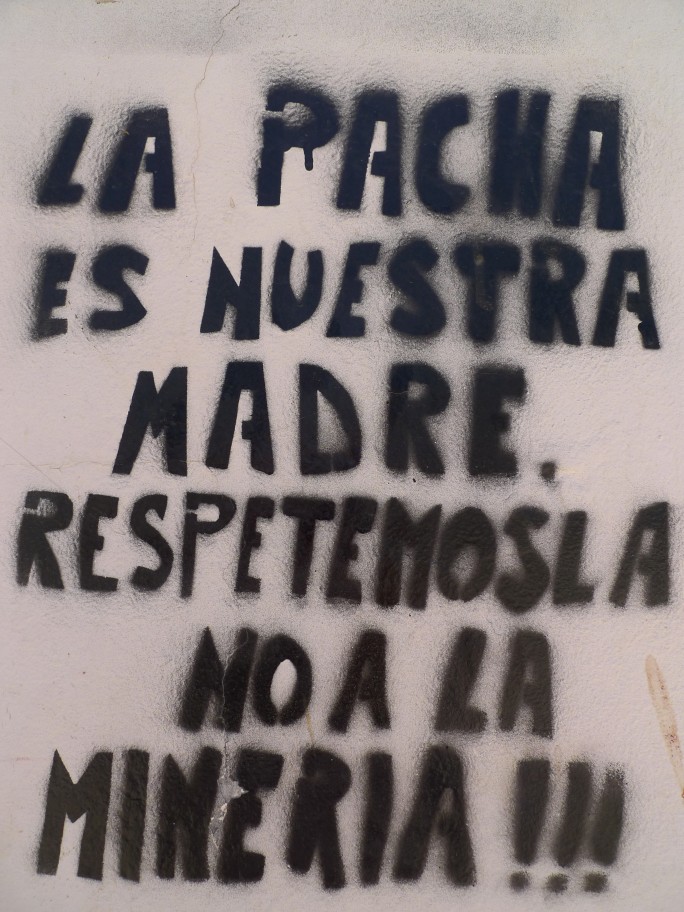 LA PACHA
ES NUESTRA
MADRE.
RESPETEMOSLA
NO A LA
MINERIA !!!